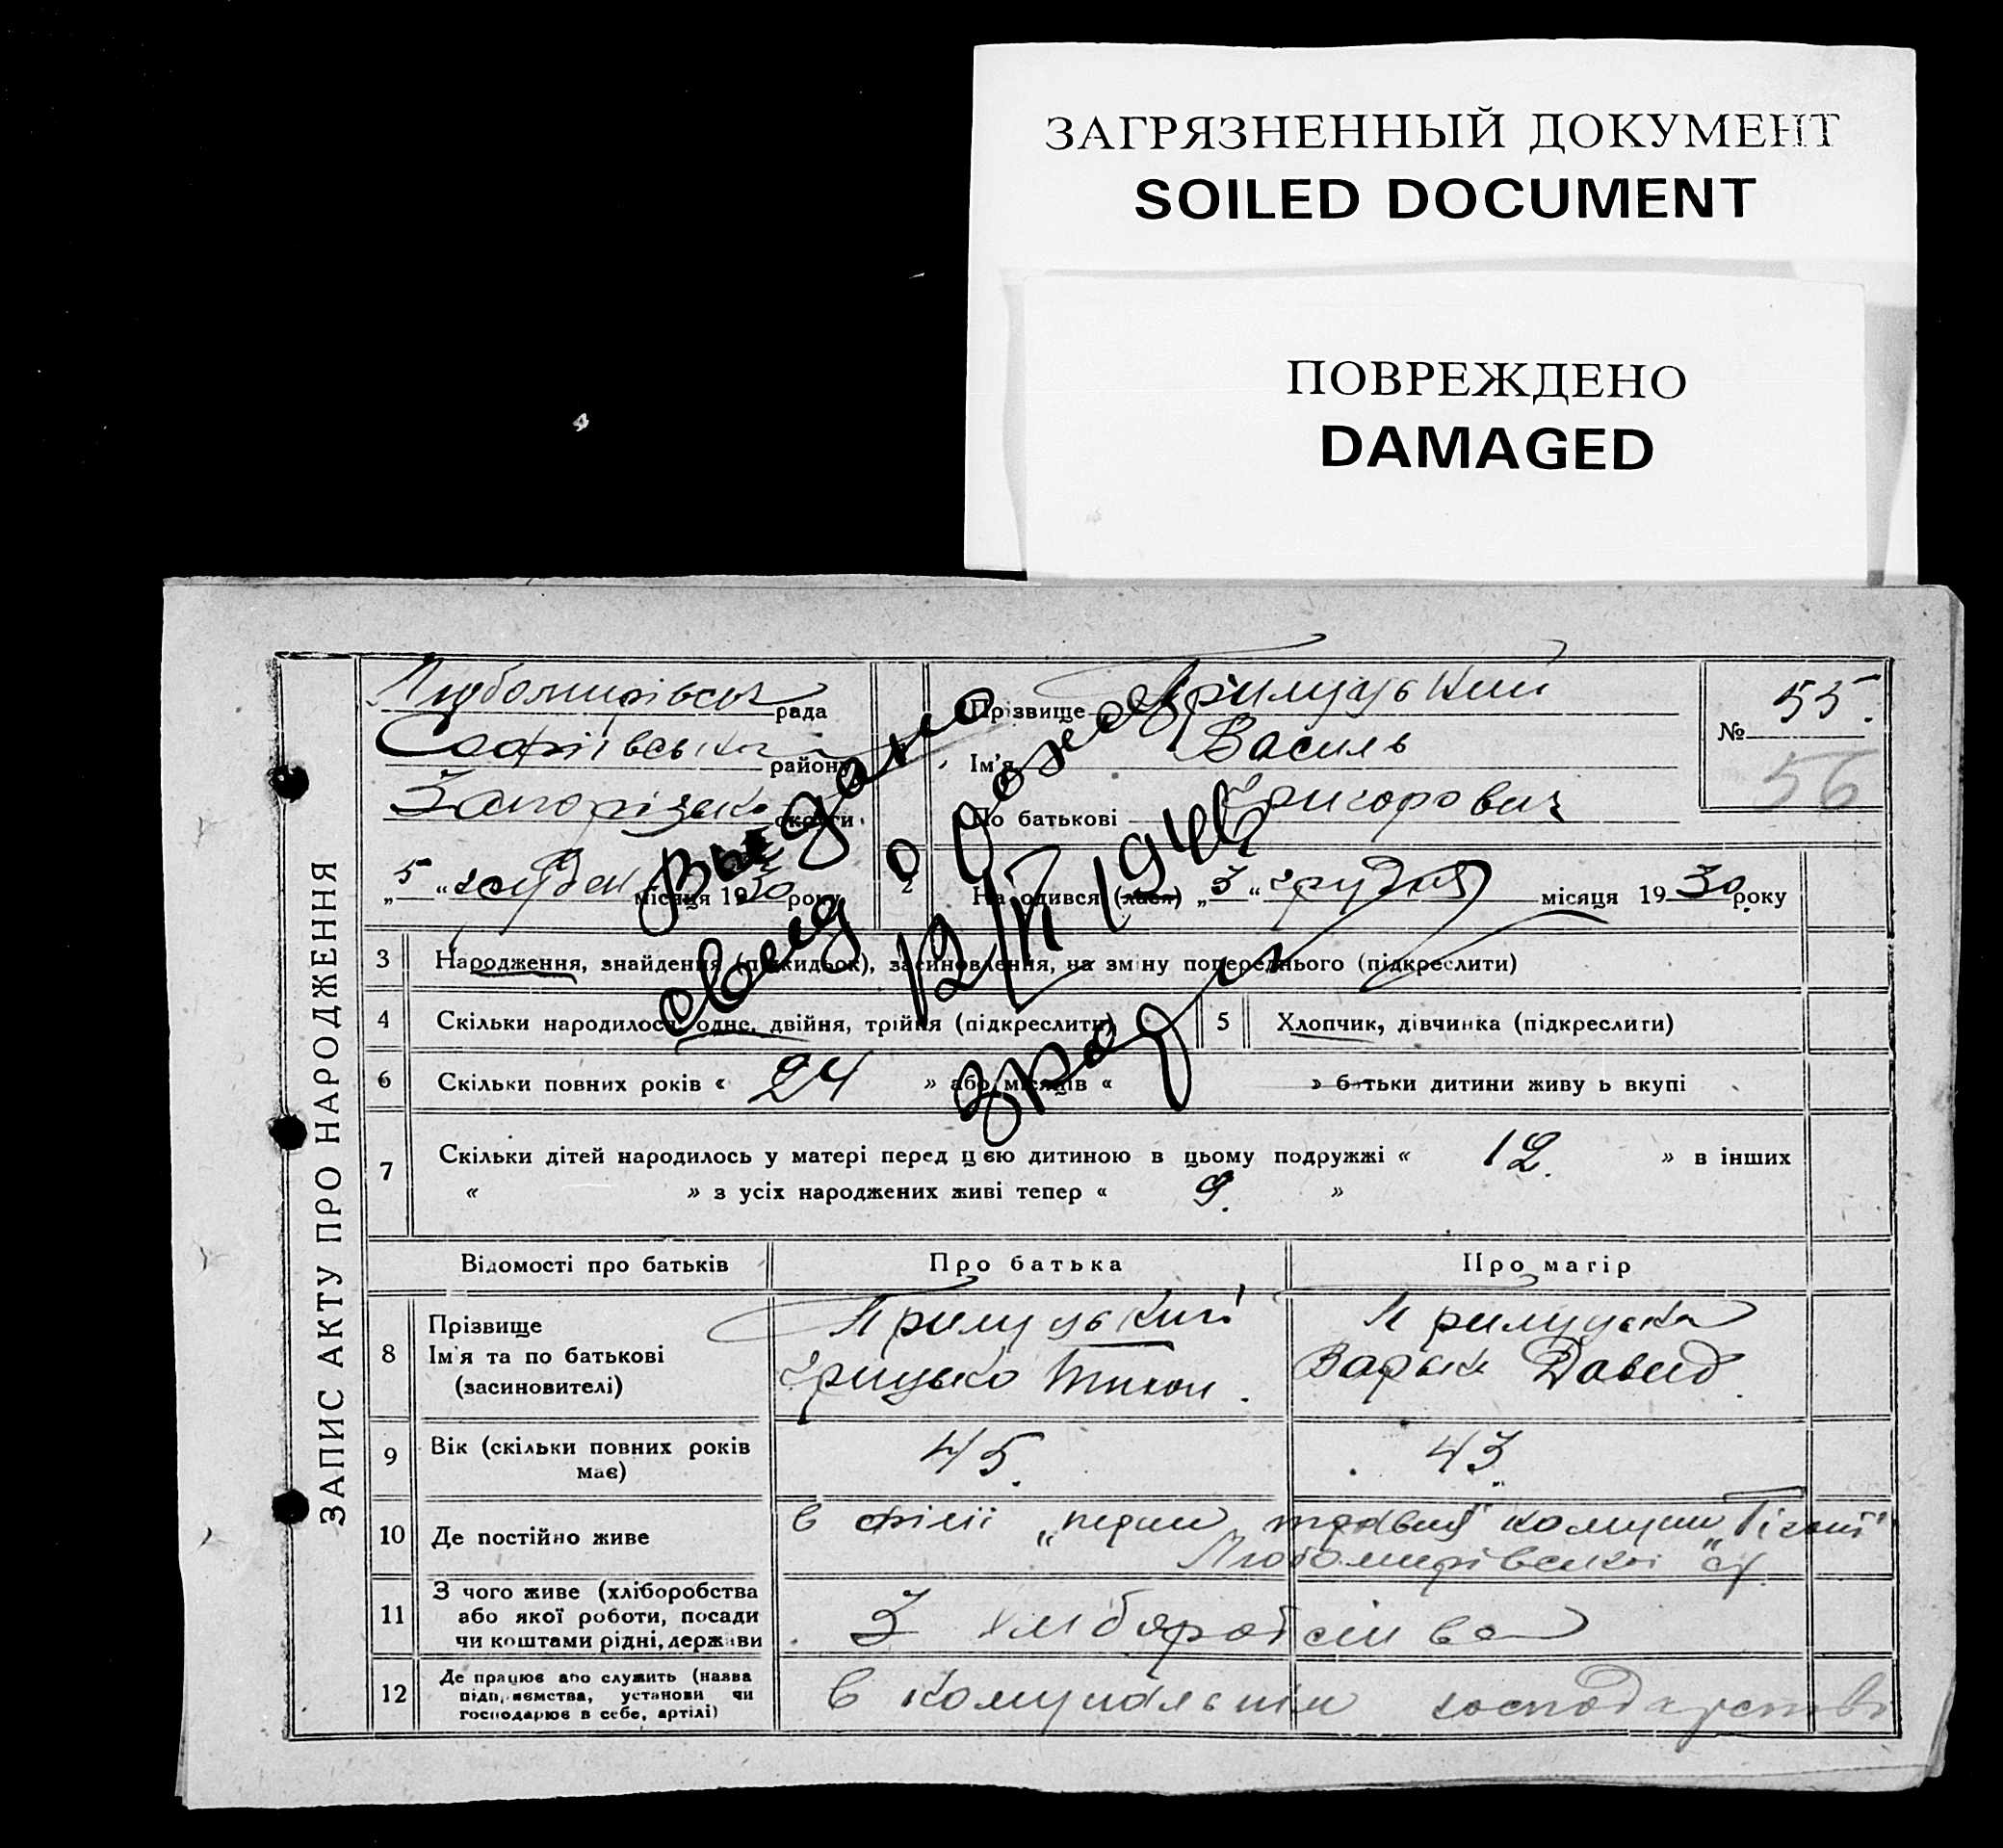 ЗАГРЯЗНЕННЫЙ ДОКУМЕНТ
SOILED DOCUMENT
ПОВРЕЖДЕНО
DAMAGED
ЗАПИС АКТУ ПРО НАРОДЖЕННЯ
Любомирівська рада
Софіївська району
Запорізька округи
„5“ грудня місяця 1930 року
Прізвище Прилуцький
Ім'я Василь
По батькові Григорович
№ 55.
56
2 Народився (лася) „3“ грудня місяця 1930 року
Выдано
свид о рожд
12/VI 1944
3 Народження, знайдення (підкидьок), засиновлення, на зміну попереднього (підкреслити)
4 Скільки народилося: одне, двійня, трійня (підкреслити)
5 Хлопчик, дівчинка (підкреслити)
6 Скільки повних років « 24 » або місяців « » батьки дитини живуть вкупі
7 Скільки дітей народилось у матері перед цією дитиною в цьому подружжі « 12. » в інших
« » з усіх народжених живі тепер « 9. »
Відомості про батьків Про батька Про матір
8 Прізвище
Ім'я та по батькові
(засиновителі)
Прилуцький
Грицько Тихон.
Прилуцька
Варька Давид.
9 Вік (скільки повних років
має)
45. 43.
10 Де постійно живе
в філії „перше травня“ комуни „Гігант“
Любомирівської с/р.
11 З чого живе (хліборобства
або якої роботи, посади
чи коштами рідні, держави
З хліборобства
12 Де працює або служить (назва
підприємства, установи чи
господарює в себе, артілі)
в комунальнім господарстві